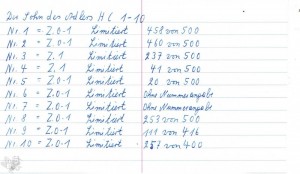 Der Sohn des Adlers HC 1-10
Nr. 1 = Z.0-1 Limitiert 458 von 500
Nr. 2 = Z.0-1 Limitiert 460 von 500
Nr. 3 = Z.1 Limitiert 237 von 500
Nr. 4 = Z.1 Limitiert 41 von 500
Nr. 5 = Z.0-1 Limitiert 20 von 500
Nr. 6 = Z.0-1 Limitiert Ohne Nummerangabe
Nr. 7 = Z.0-1 Limitiert Ohne Nummerangabe
Nr. 8 = Z.0-1 Limitiert 253 von 500
Nr. 9 = Z.0-1 Limitiert 111 von 416
Nr. 10 = Z.0-1 Limitiert 257 von 400